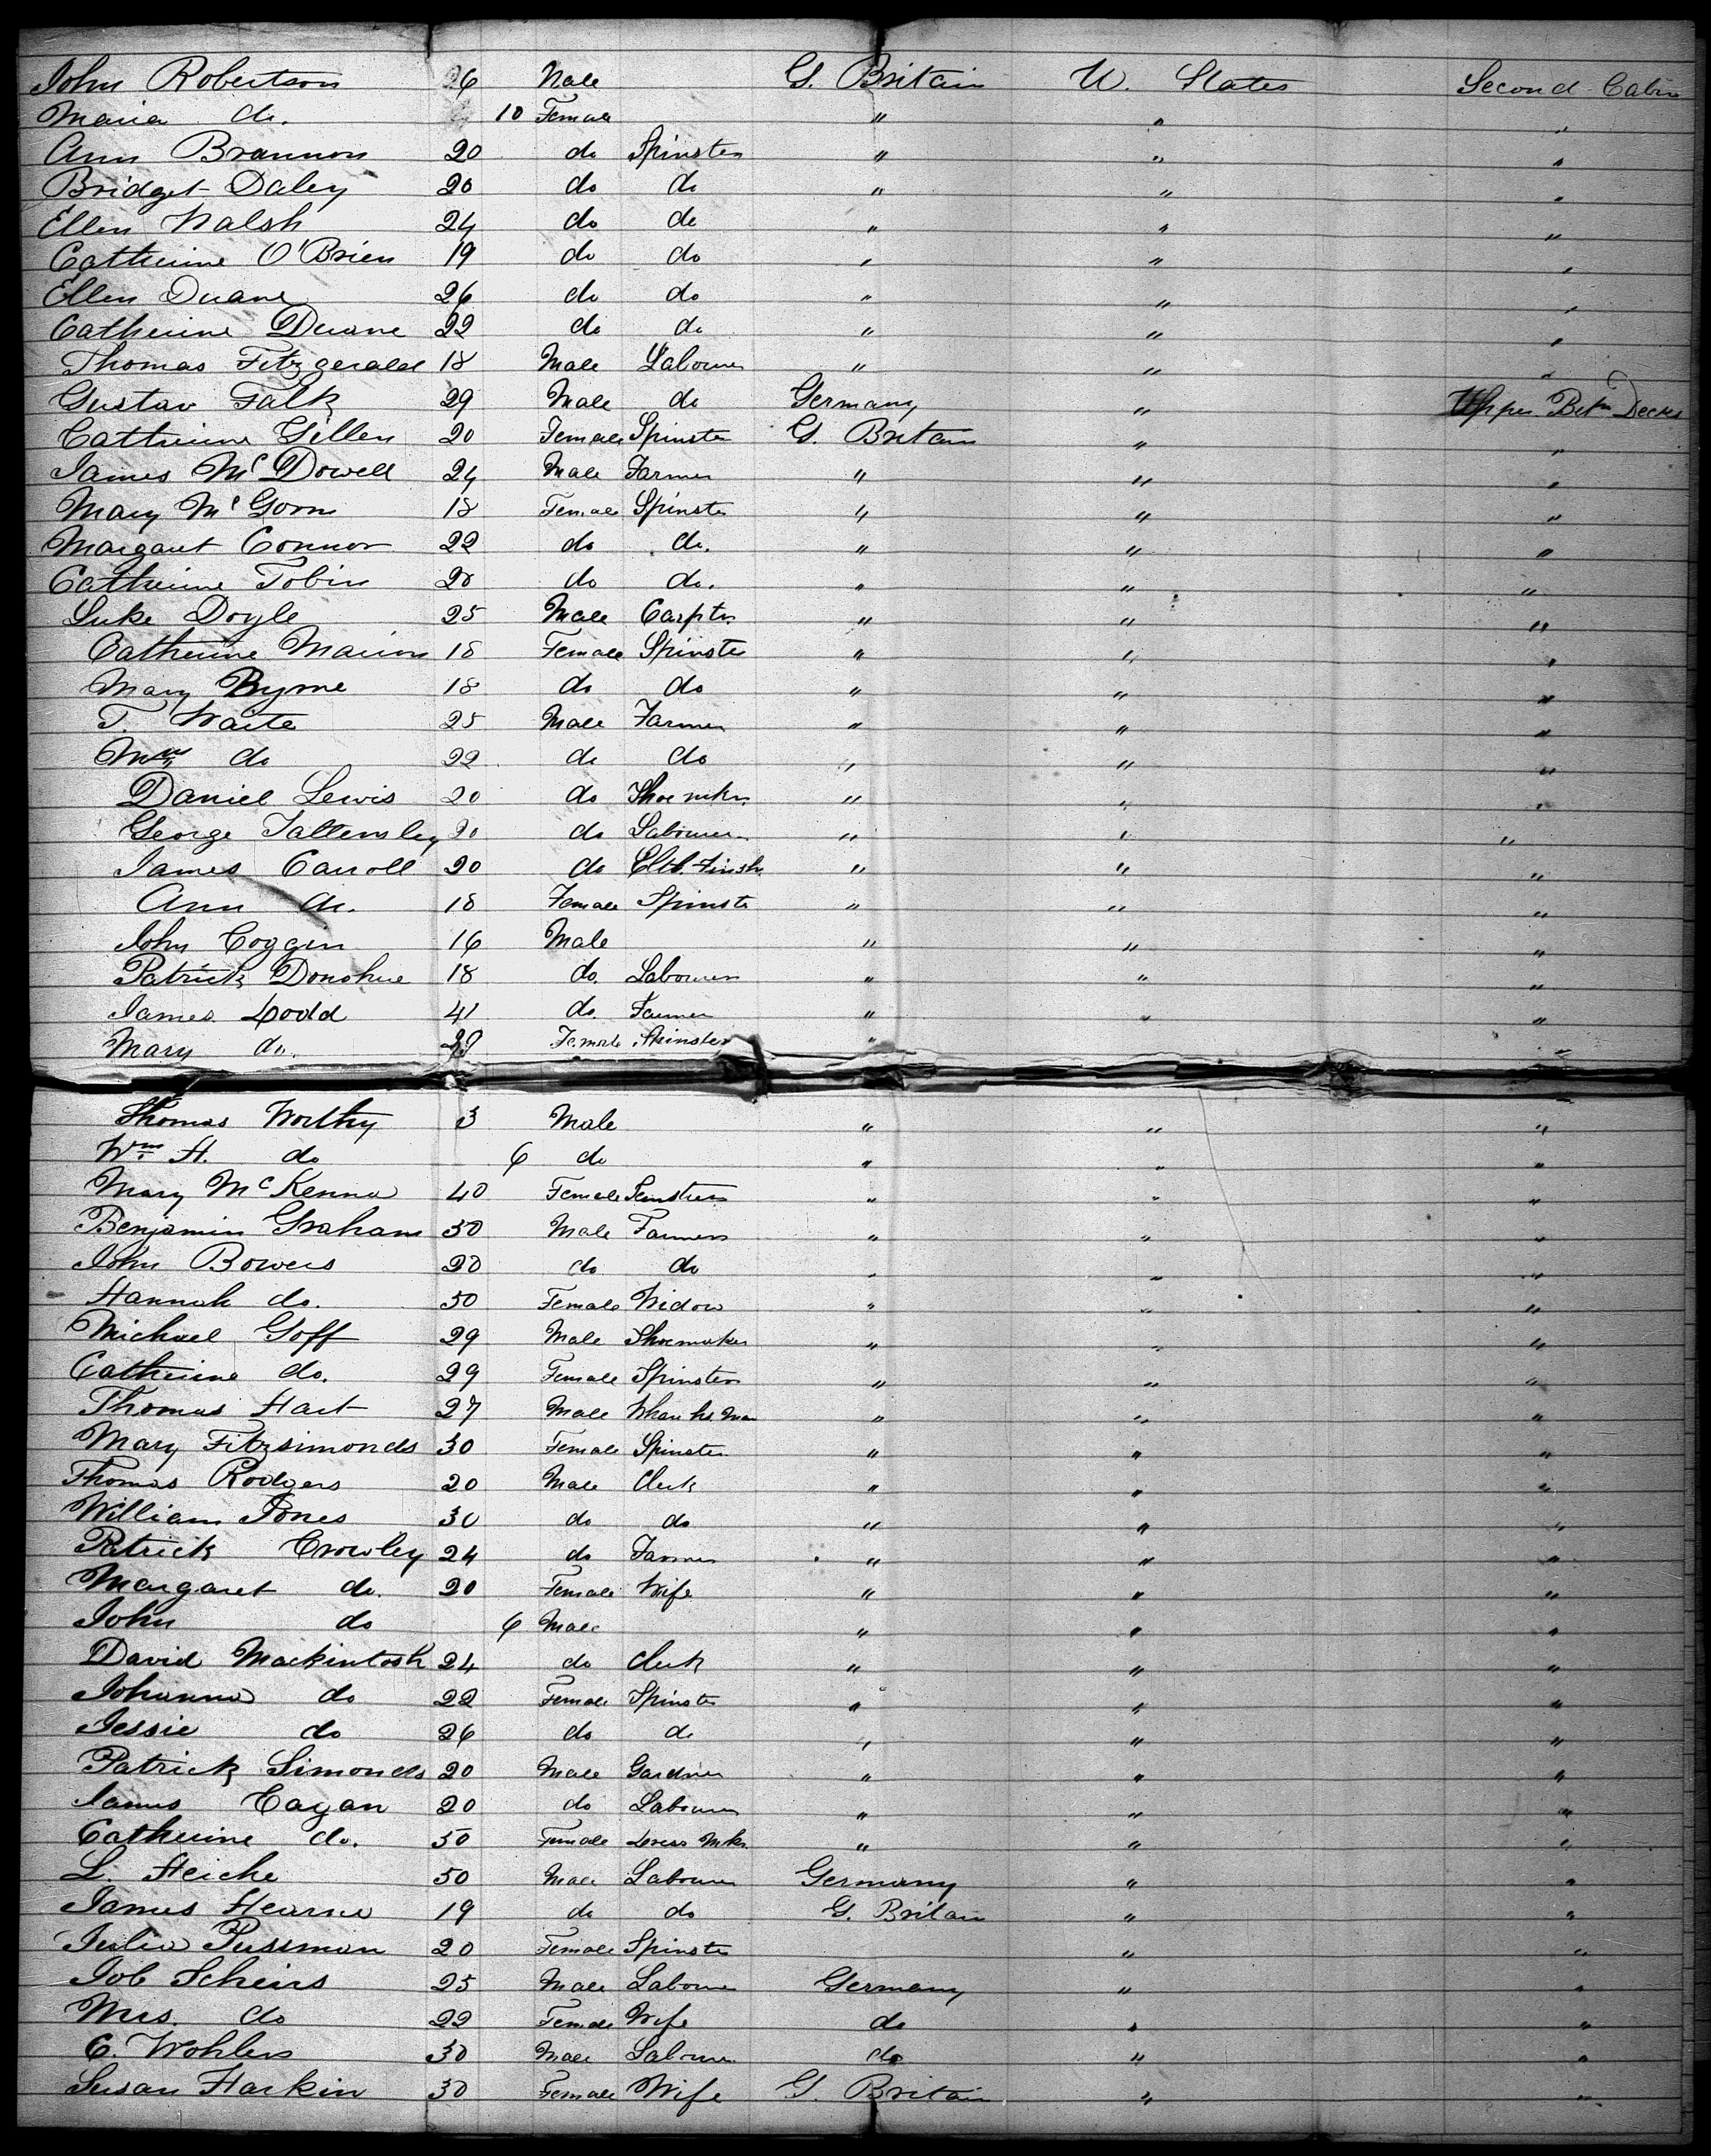 John Robertson 26 Male G. Britain U. States Second Cabin
Maria do. 10 Female " " "
Ann Brannon 20 do Spinster " " "
Bridget Daley 20 do do " " "
Ellen Walsh 24 do do " " "
Catherine O'Brien 19 do do " " "
Ellen Duane 26 do do " " "
Catherine Duane 22 do do " " "
Thomas Fitzgerald 18 Male Labourer " " "
Gustav Falk 29 Male do Germany " Upper Betn Decks
Catherine Gillen 20 Female Spinster G. Britain " "
James McDowell 24 Male Farmer " " "
Mary McGoorn 18 Female Spinster " " "
Margaret Connor 22 do do. " " "
Catherine Tobin 20 do do. " " "
Luke Doyle 25 Male Carptr " " "
Catherine Marion 18 Female Spinster " " "
Mary Byrne 18 do do " " "
T. Waite 25 Male Farmer " " "
do 22 do do " " "
Daniel Lewis 20 do Shoemkr " " "
George Tattersley 20 do Labourer " " "
James Carroll 20 do Clth. Finshr " " "
Ann do. 18 Female Spinster " " "
John Coggin 16 Male " " "
Patrick Donohue 18 do. Labourer " " "
James Dodd 41 do. Farmer " " "
Mary do. Female Spinster " "
Thomas Worthy 3 Male " " "
Wm H. do 6 do " " "
Mary McKenna 40 Female Spinster " " "
Benjamin Graham 30 Male Farmer " " "
John Bowers 20 do do " " "
Hannah do. 50 Female Widow " " "
Michael Goff 29 Male Shoemaker " " "
Catherine do. 29 Female Spinster " " "
Thomas Hart 27 Male Man " " "
Mary Fitzsimonds 30 Female Spinster " " "
Thomas Rodgers 20 Male Clerk " " "
William Jones 30 do do " " "
Patrick Crowley 24 do Farmer " " "
Margaret do. 20 Female Wife " " "
John do 6 Male " " "
David Mackintosh 24 do Clerk " " "
Johanna do 22 Female Spinster " " "
Jessie do 26 do do " " "
Patrick Simonds 20 Male Gardner " " "
James Eagan 20 do Labourer " " "
Catherine do. 50 Female Dress Mkr. " " "
L. Heiche 50 Male Labourer Germany " "
James Hearne 19 do do G. Britain " "
Julia Pussman 20 Female Spinster " "
Job Scheirs 25 Male Labourer Germany " "
Mrs. do 22 Female Wife do " "
C. Wohlers 30 Male Labourer do " "
Susan Harkin 30 Female Wife G. Britain " "